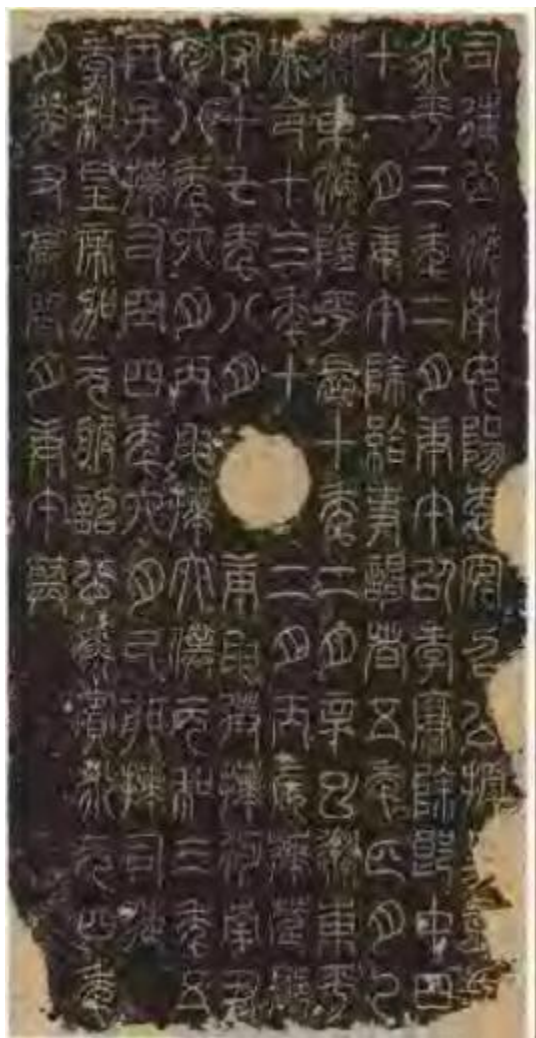 司徒公汝南女陽袁安召公授孟氏
永平三年二月庚午以孝廉除郎中四
十一月庚午除給事謁者五年四月乙
遷東海陰平長十年二月辛巳遷東平
城令十三年十二月丙辰拜楚郡
守十七年八月庚申徵拜河南尹
初八年六月丙申拜太僕元和三年五
丙子拜司空四年六月己卯拜司徒
孝和皇帝加元服詔公為賓永元四年
月癸丑薨閏月庚午葬